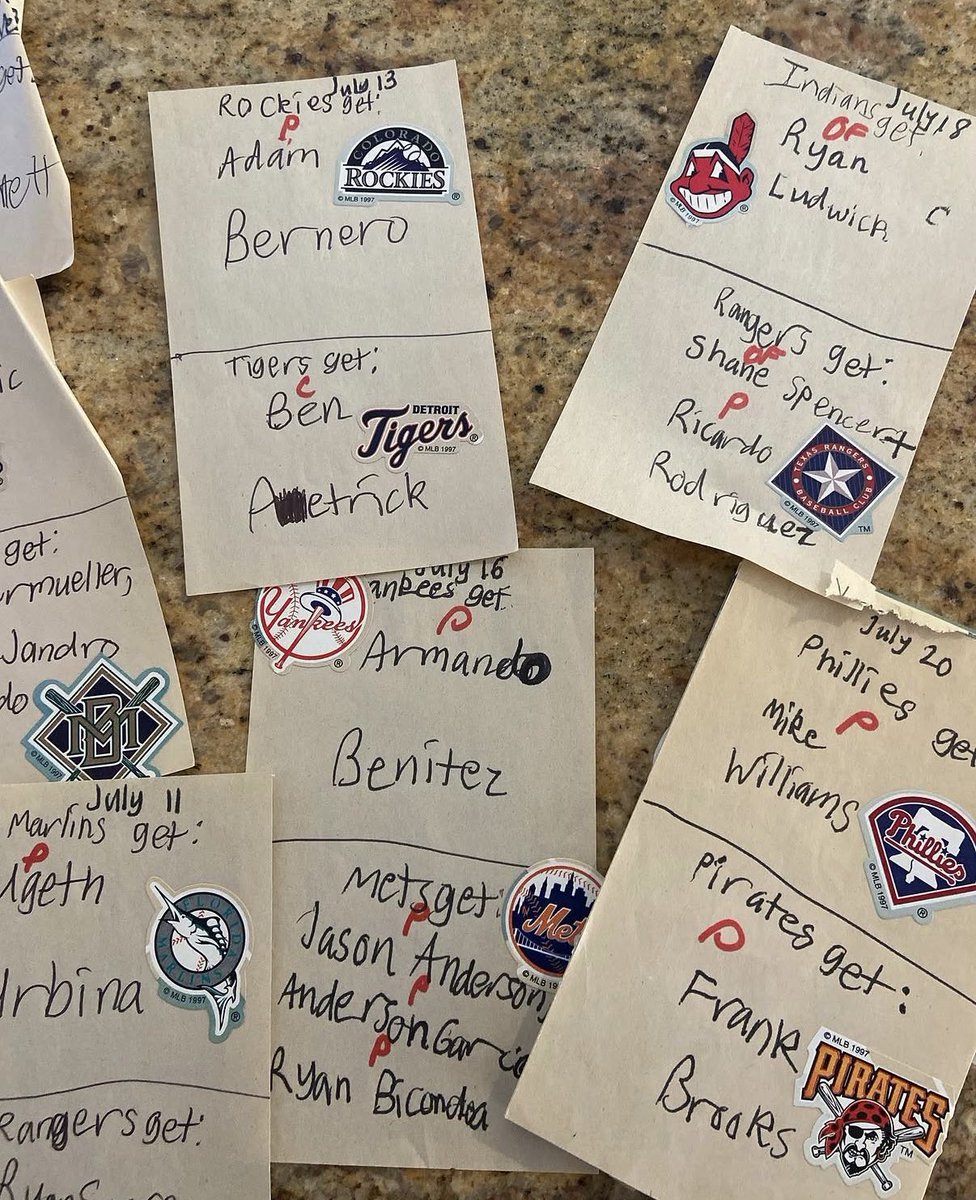 get.
July 13
Rockies get:
P
Adam
COLORADO
ROCKIES
© MLB 1997
®
Bernero
Tigers get:
C
Ben
DETROIT
Tigers
®
© MLB 1997
A etrick
July 18
Indians get:
OF
Ryan
Ludwick
C
© MLB 1997
®
Rangers get:
OF
Shane Spencer +
P
Ricardo
Rodriguez
TEXAS RANGERS
BASEBALL CLUB
© MLB 1997
TM
ic
get:
ermueller,
Jandro
do
MB
© MLB 1997
July 11
Marlins get:
P
Ugeth
Urbina
FLORIDA
MARLINS
© MLB 1997
®
Rangers get:
Ryan
July 16
Yankees get:
Yankees
®
P
Armando
Benitez
Mets get:
P
Jason Anderson,
P
Anderson Garcia
P
Ryan Bicondoa
Mets
© MLB 19
July 20
Phillies get
P
Mike
Williams
Phillies
© MLB 1997
®
Pirates get:
P
Frank
Brooks
© MLB 1997
PIRATES
TM